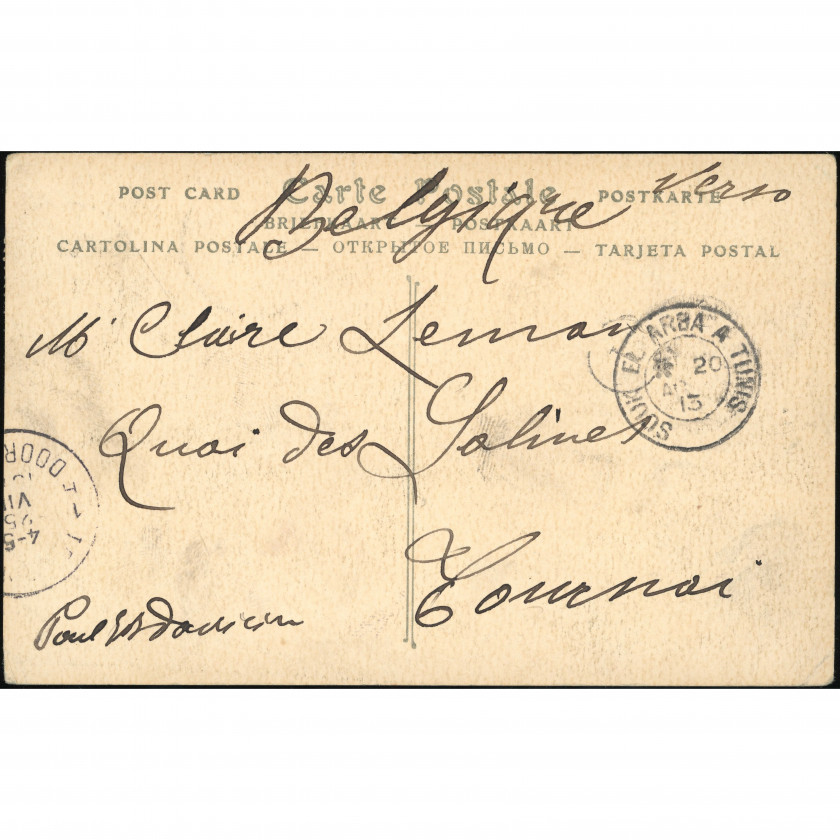 POST CARD Carte Postale POSTKARTE
Verso
Belgique
BRIEFKAART — POSTKAART
CARTOLINA POSTALE — ОТКРЫТОЕ ПИСЬМО — TARJETA POSTAL
Mr Claire Leman
Quai des Salines
Tournai
SOUK EL ARBA A TUNIS
20
13
DOOR
VII
25
4-5
Paul